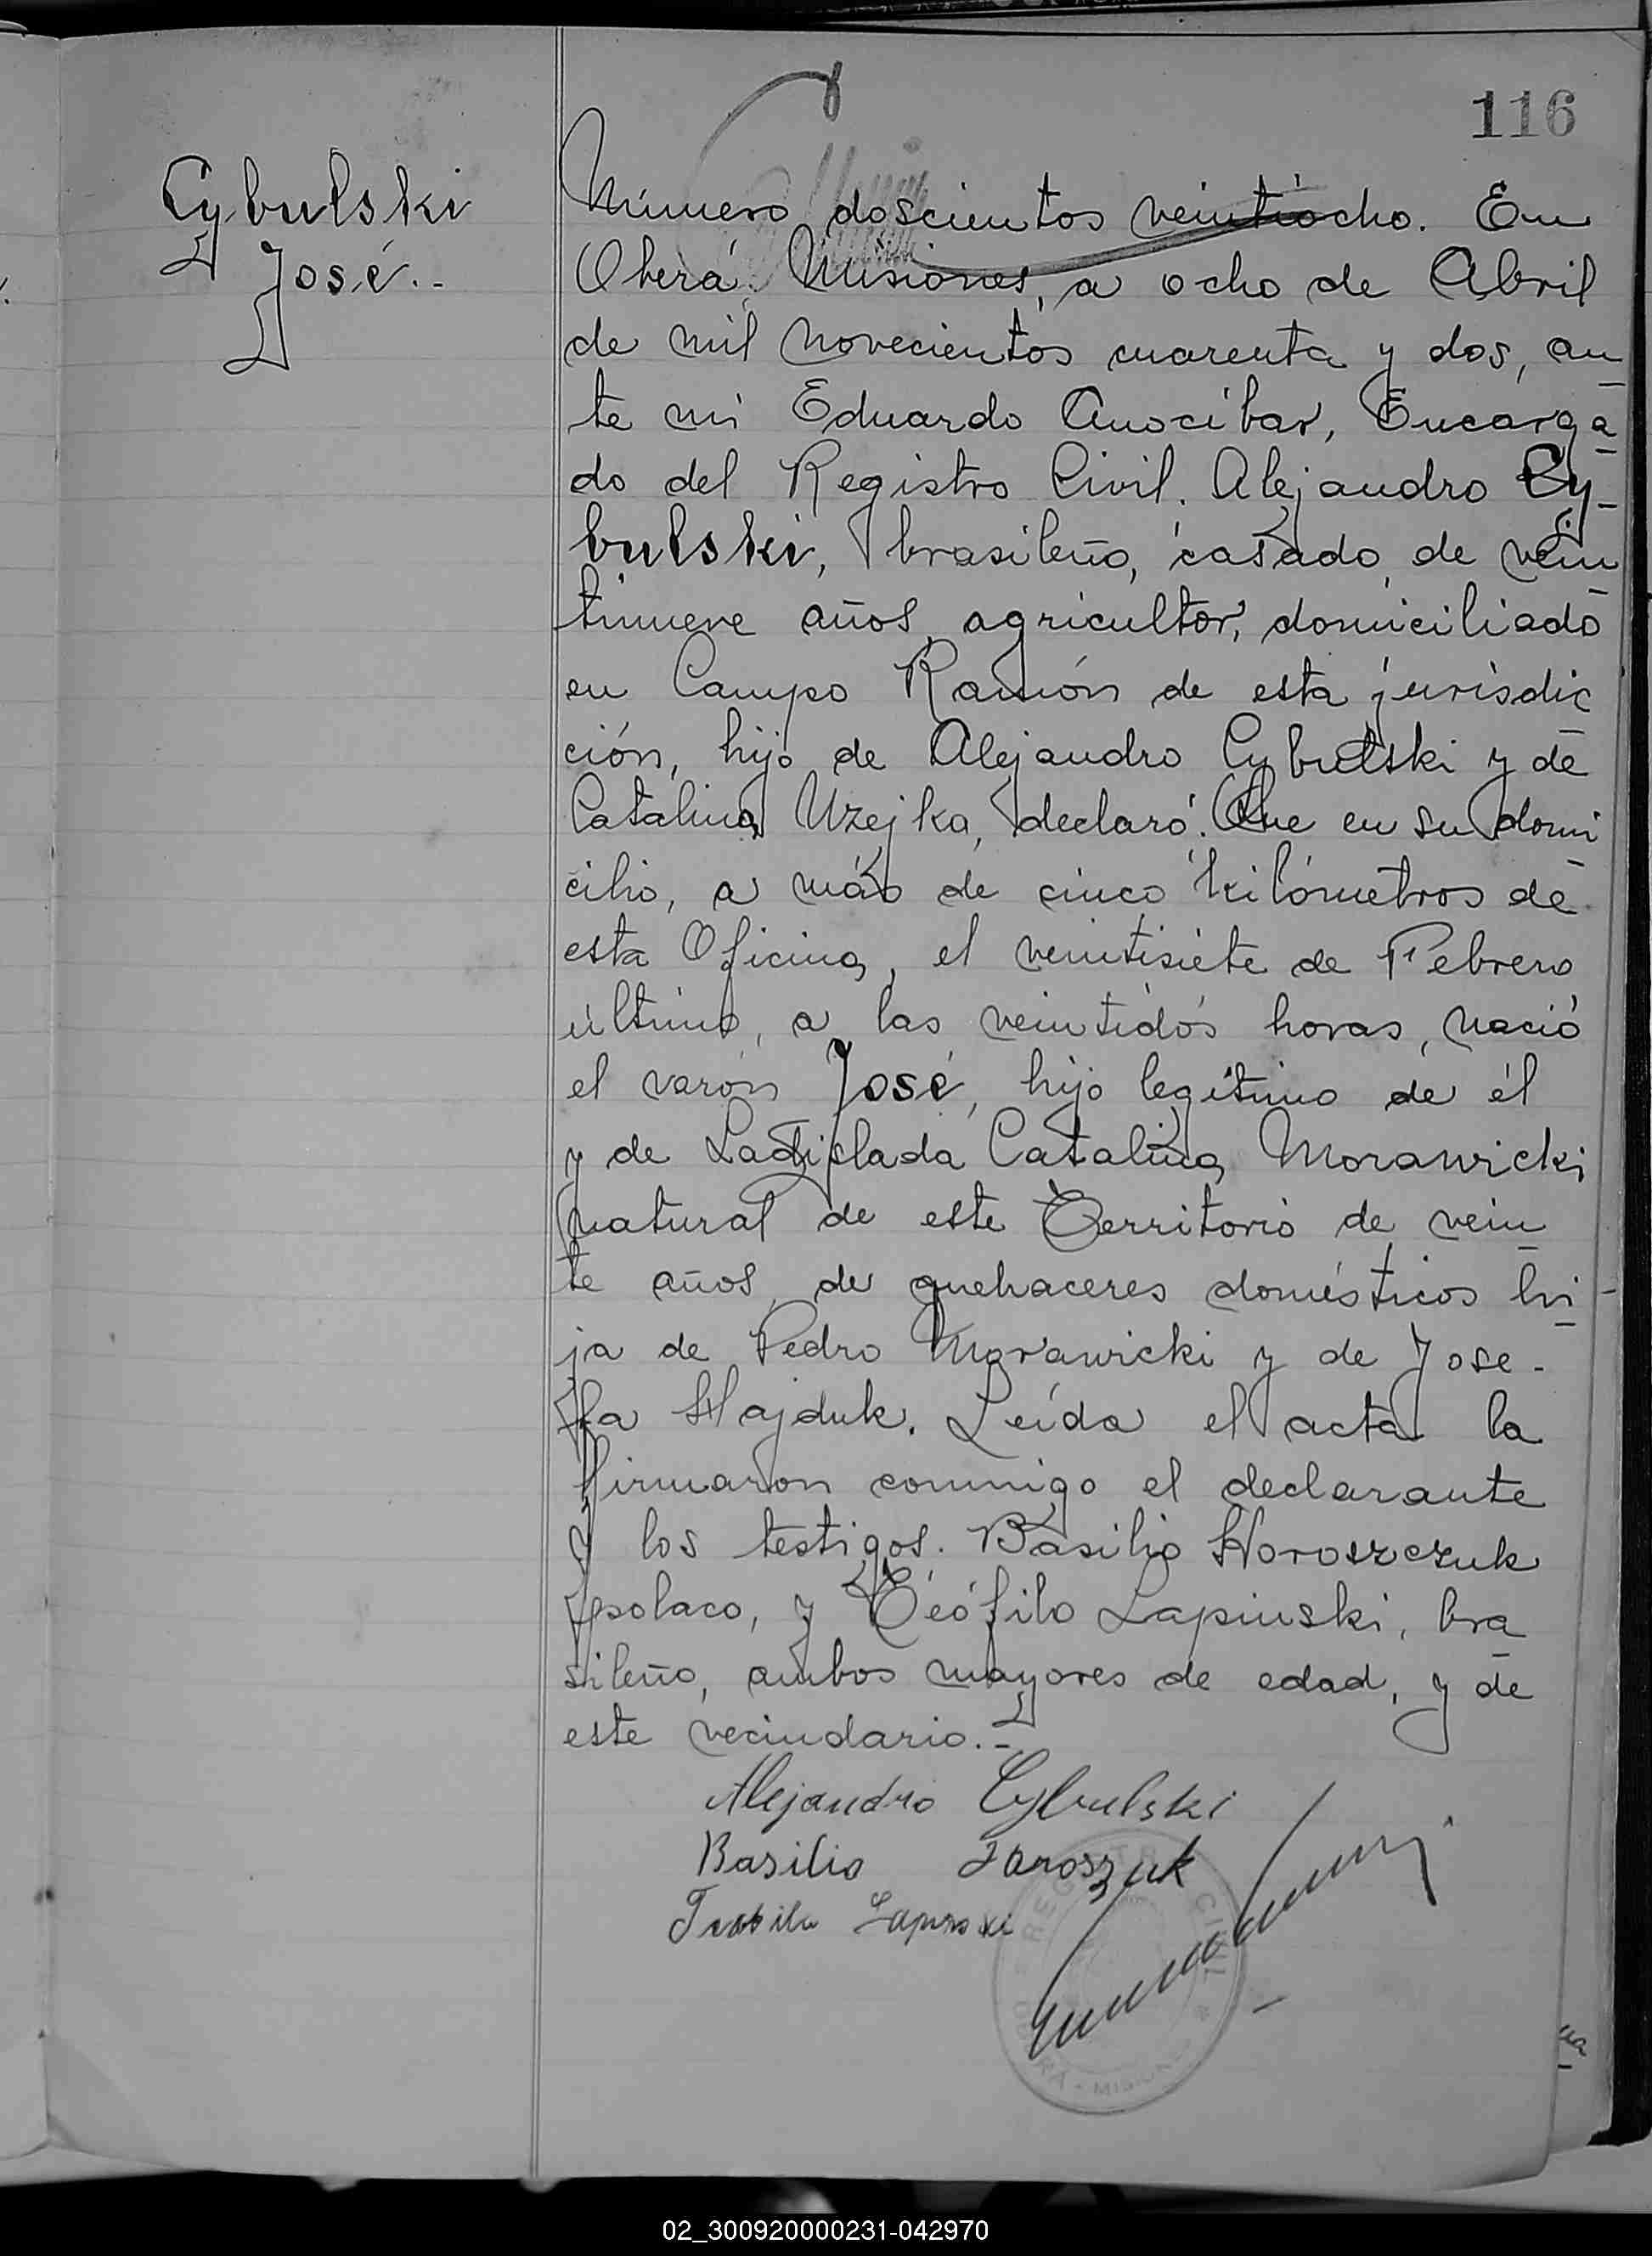 116
Cybulski
José.-
Número doscientos veintiocho. En
Oberá, Misiones, a ocho de Abril
de mil novecientos cuarenta y dos, an
te mi Eduardo Anocíbar, Encarga
do del Registro Civil. Alejandro Cy-
bulski, brasileño, casado, de vein
tinueve años, agricultor, domiciliado
en Campo Ramón de esta jurisdic
ción, hijo de Alejandro Cybulski y de
Catalina Uzejka, declaró: Que en su domi
cilio, a más de cinco kilómetros de
esta Oficina, el veintisiete de Febrero
último, a las veintidós horas, nació
el varón José, hijo legítimo de él
y de Ladislada Catalina Morawicki
natural de este Territorio de vein
te años, de quehaceres domésticos hi
ja de Pedro Morawicki y de Jose-
fa Hajduk. Leída el acta la
firmaron conmigo el declarante
y los testigos. Basilio Horoszczuk
polaco, y Teófilo Lapinski, bra
sileño, ambos mayores de edad, y de
este vecindario.-
Alejandro Cybulski
Basilio
REGISTRO CIVIL
02_300920000231-042970